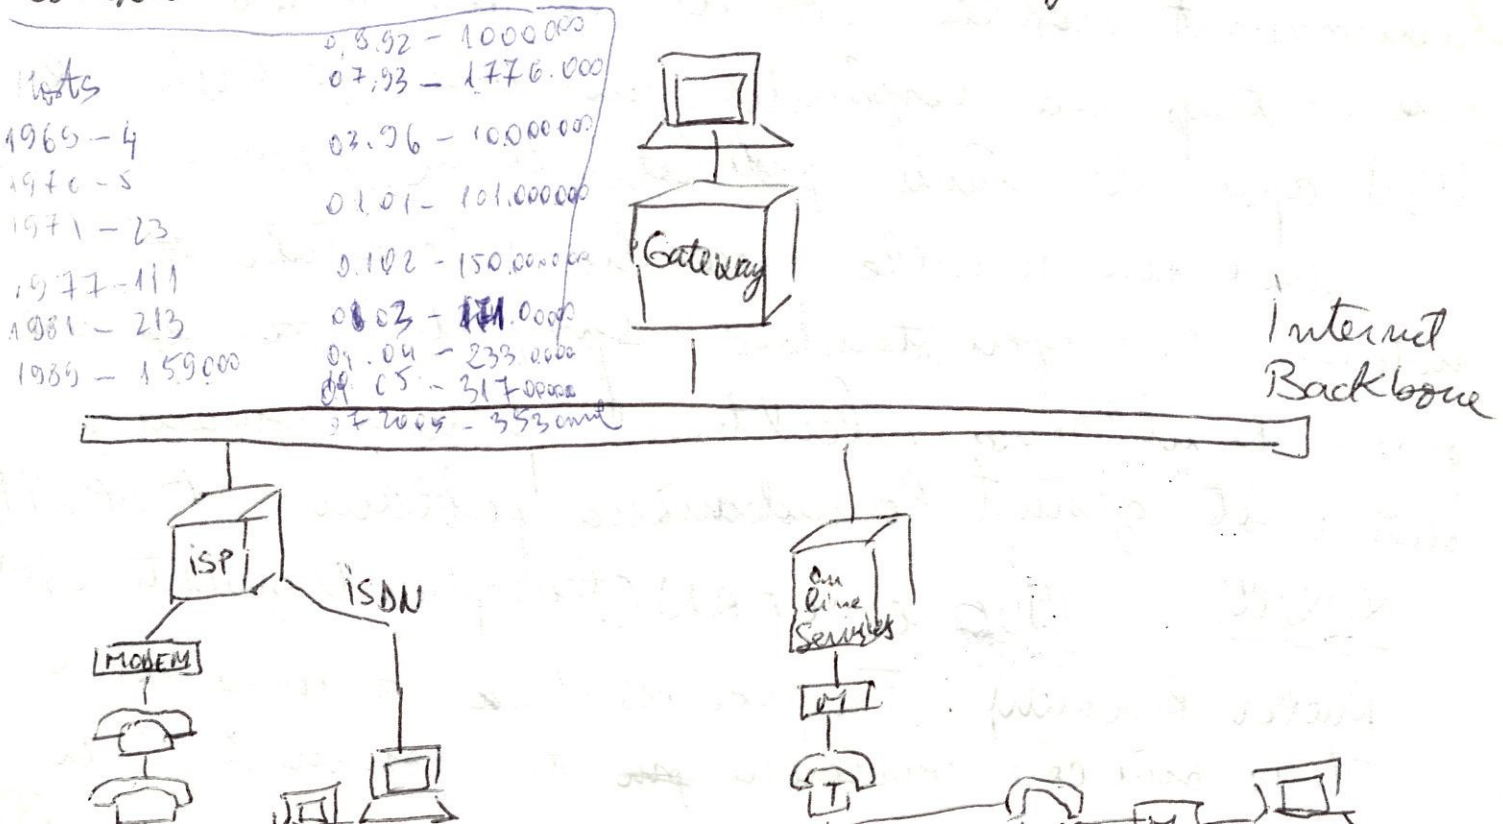 Hosts
1969 - 4
1970 - 5
1971 - 23
1977 - 111
1981 - 213
1989 - 159000
07,93 - 1776.000
03.96 - 10.000000
01.01 - 101.000000
0.102 - 150.000000
01.04 - 233.0000
07 2005 - 353
Gateway
Internet
Backbone
ISP
ISDN
MODEM
On
line
Services
M
T
M